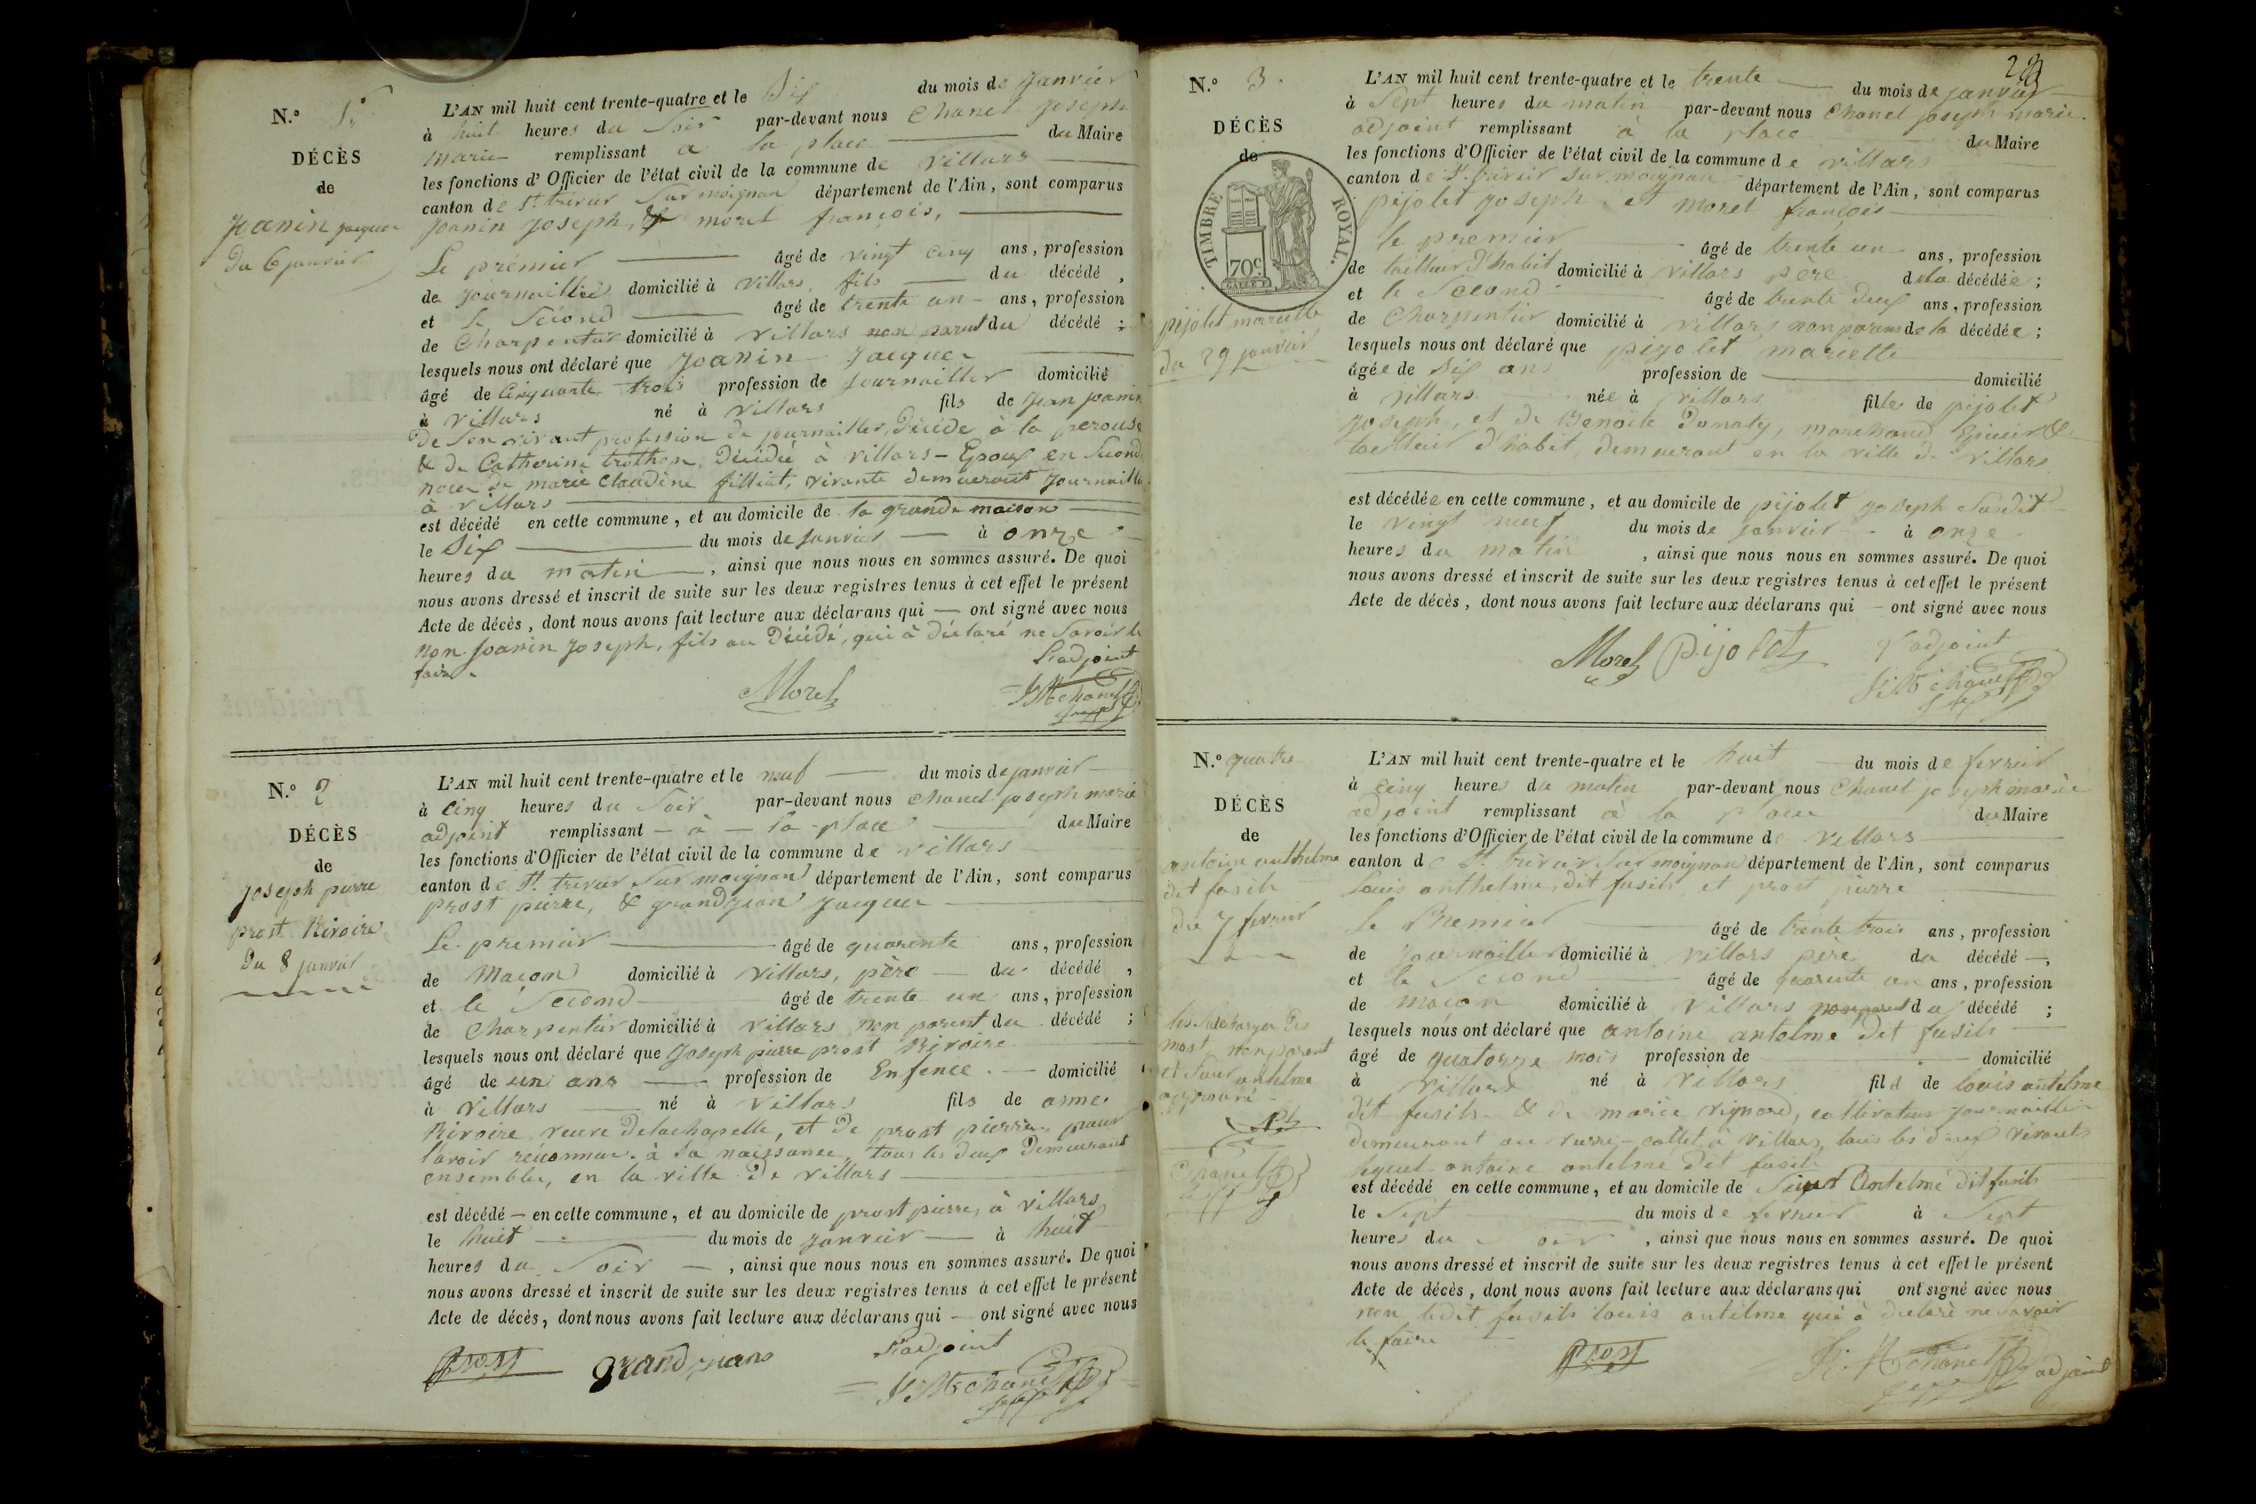 N.º 1.er
DÉCÈS
de
Joanin jacques
du 6 janvier
L'AN mil huit cent trente-quatre et le Six du mois de Janvier
à huit heures du Soir par-devant nous Chanel Joseph
marie remplissant a la place du Maire
les fonctions d'Officier de l'état civil de la commune de Villars
canton de St. trivier Sur moignan département de l'Ain, sont comparus
Joanin Joseph, & morel françois,
Le premier âgé de vingt cinq ans, profession
de journaillier domicilié à Villars, fils du décédé,
et le Second âgé de trente un ans, profession
de Charpentier domicilié à Villars non parent du décédé;
lesquels nous ont déclaré que Joanin Jacques
âgé de Cinquante trois profession de Journaillier domicilié
à Villars né à Villars fils de jean joanin
de Son vivant profession de journaillier, décédé à la perouse
& de Catherine trothon, Décédée à Villars - Epoux en Second
noces de marie Claudine filliat, vivante demeurant Journaillière
à Villars
est décédé en cette commune, et au domicile de la grande maison
le Six du mois de Janvier à onze
heures du matin, ainsi que nous nous en sommes assuré. De quoi
nous avons dressé et inscrit de suite sur les deux registres tenus à cet effet le présent
Acte de décès, dont nous avons fait lecture aux déclarans qui — ont signé avec nous
non Joanin Joseph, fils au Décédé, qui à déclaré ne Savoir le
faire.
L'adjoint
Morel
JM chanel
N.º 2
DÉCÈS
de
joseph pierre
prost Rivoire
du 8 janvier
L'AN mil huit cent trente-quatre et le neuf du mois de janvier
à cinq heures du Soir par-devant nous chanel joseph marie
adjoint remplissant - à - la - place du Maire
les fonctions d'Officier de l'état civil de la commune de Villars
canton de St. trivier Sur moignan département de l'Ain, sont comparus
prost pierre, & grandjean jacques
Le premier âgé de quarente ans, profession
de Maçon domicilié à Villars, père du décédé,
et le Second âgé de trente un ans, profession
de Charpentier domicilié à Villars non parent du décédé;
lesquels nous ont déclaré que Joseph pierre prost Rivoire
âgé de un ans profession de Enfence domicilié
à Villars né à Villars fils de anne
Rivoire veuve delachapelle, et de prost pierre pour
l'avoir reconnu à Sa naissance, tous les deux Demeurant
ensemble, en la ville de Villars
est décédé — en cette commune, et au domicile de prost pierre, à Villars
le huit du mois de janvier à huit
heures du Soir, ainsi que nous nous en sommes assuré. De quoi
nous avons dressé et inscrit de suite sur les deux registres tenus à cet effet le présent
Acte de décès, dont nous avons fait lecture aux déclarans qui — ont signé avec nous
L'adjoint
prost grandjean
JM chanel
N.º 3.
DÉCÈS
de
TIMBRE ROYAL.
70c
pijolet mariette
du 29 janvier
L'AN mil huit cent trente-quatre et le trente du mois de janvier
à Sept heures du matin par-devant nous Chanel joseph marie
adjoint remplissant à la place du Maire
les fonctions d'Officier de l'état civil de la commune de villars
canton de St. trivier Sur moignan département de l'Ain, sont comparus
pijolet joseph, et morel françois
le premier âgé de trente un ans, profession
de tailleur d'habit domicilié à Villars père de la décédée;
et le Second âgé de trente deux ans, profession
de Charpentier domicilié à Villars non parens de la décédée;
lesquels nous ont déclaré que pijolet mariette
âgée de dix ans profession de domicilié
à Villars née à Villars fille de pijolet
joseph, et de Benoite Donaty, marchand Epicier &
tailleur d'habit, demeurant en la ville de Villars
est décédée en cette commune, et au domicile de pijolet joseph Susdit
le vingt neuf du mois de janvier à onze
heures du matin, ainsi que nous nous en sommes assuré. De quoi
nous avons dressé et inscrit de suite sur les deux registres tenus à cet effet le présent
Acte de décès, dont nous avons fait lecture aux déclarans qui — ont signé avec nous
Morel pijolet l'adjoint
JM chanel
N.º quatre
DÉCÈS
de
antoine anthelme
dit fusils
du 7 fevrier
non parent
antelme
approuvé
Chanel
L'AN mil huit cent trente-quatre et le huit du mois de fevrier
à cinq heures du matin par-devant nous Chanel joseph marie
adjoint remplissant à la place du Maire
les fonctions d'Officier de l'état civil de la commune de Villars
canton de St. trivier Sur moignan département de l'Ain, sont comparus
Louis anthelme, dit fusils et prost pierre
Le Premier âgé de trente trois ans, profession
de Journaillier domicilié à Villars père du décédé,
et le Second âgé de quarente un ans, profession
de maçon domicilié à Villars non parent du décédé;
lesquels nous ont déclaré que antoine antelme dit fusils
âgé de quatorze mois profession de domicilié
à Villars né à Villars fils de louis antelme
dit fusils & de marie vignard, cultivateur journaillier
demeurant au à Villars, tous les deux vivants
lequel antoine antelme dit fusils
est décédé en cette commune, et au domicile de antelme dit fusils
le Sept du mois de fevrier à Sept
heures du Soir, ainsi que nous nous en sommes assuré. De quoi
nous avons dressé et inscrit de suite sur les deux registres tenus à cet effet le présent
Acte de décès, dont nous avons fait lecture aux déclarans qui ont signé avec nous
non ledit fusils louis antelme qui à déclaré ne savoir
le faire
prost JM chanel adjoint